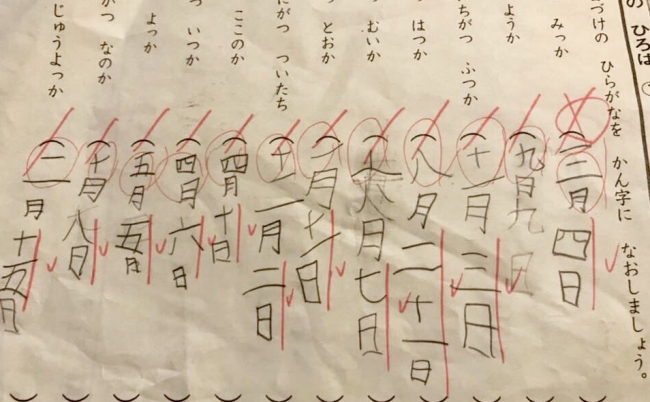 の ひろは
づけの ひらがなを かん字に なおしましょう。
みっか
三月四日
ようか
九日九日
ちがつ ふつか
十一月三日
はつか
八月二十一日
むいか
八月七日
とおか
二月十一日
にがつ ついたち
十二月二日
ここのか
四月十日
いつか
四日六日
よっか
五月五日
がつ なのか
十月八日
じゅうよっか
二月十五日